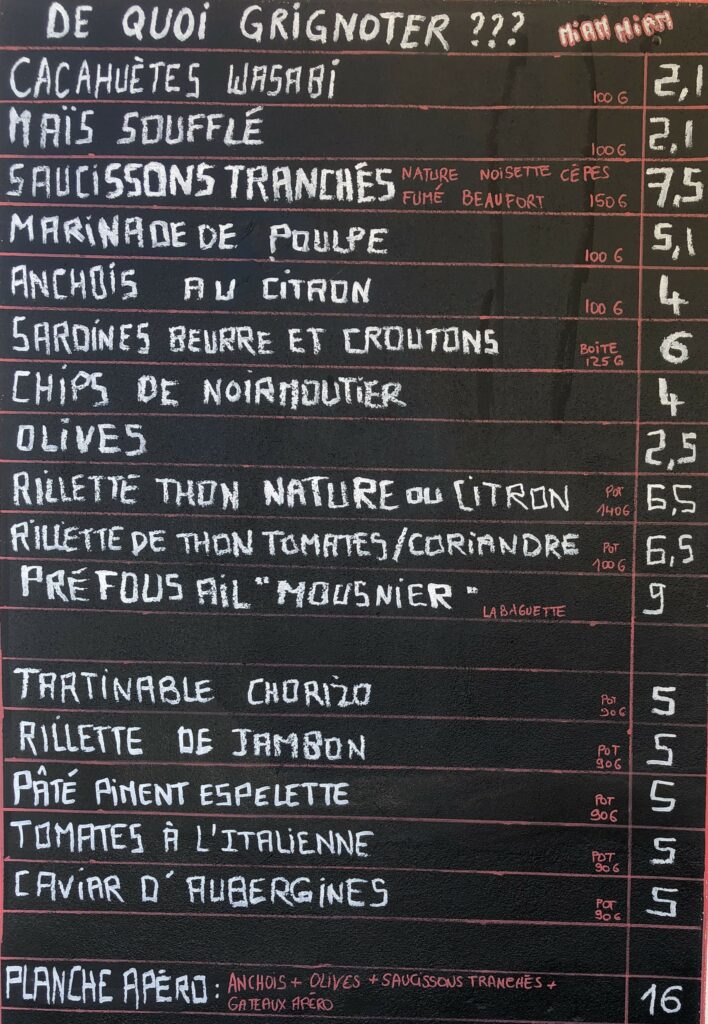 DE QUOI GRIGNOTER ??? MIAM MIAM
CACAHUÈTES WASABI 100 G 2,1
MAÏS SOUFFLÉ 100 G 2,1
SAUCISSONS TRANCHÉS NATURE NOISETTE CÉPES 7,5
FUMÉ BEAUFORT 150 G
MARINADE DE POULPE 100 G 5,1
ANCHOIS AU CITRON 100 G 4
SARDINES BEURRE ET CROUTONS BOITE 6
125 G
CHIPS DE NOIRMOUTIER 4
OLIVES 2,5
RILLETTE THON NATURE OU CITRON POT 6,5
140G
RILLETTE DE THON TOMATES/CORIANDRE POT 6,5
100 G
PRÉFOUS AIL "MOUSNIER" LA BAGUETTE 9
TARTINABLE CHORIZO POT 5
90G
RILLETTE DE JAMBON POT 5
90G
PÂTÉ PIMENT ESPELETTE POT 5
90G
TOMATES À L'ITALIENNE POT 5
90G
CAVIAR D'AUBERGINES POT 5
90G
PLANCHE APÉRO : ANCHOIS + OLIVES + SAUCISSONS TRANCHÉS + 16
GATEAUX APÉRO